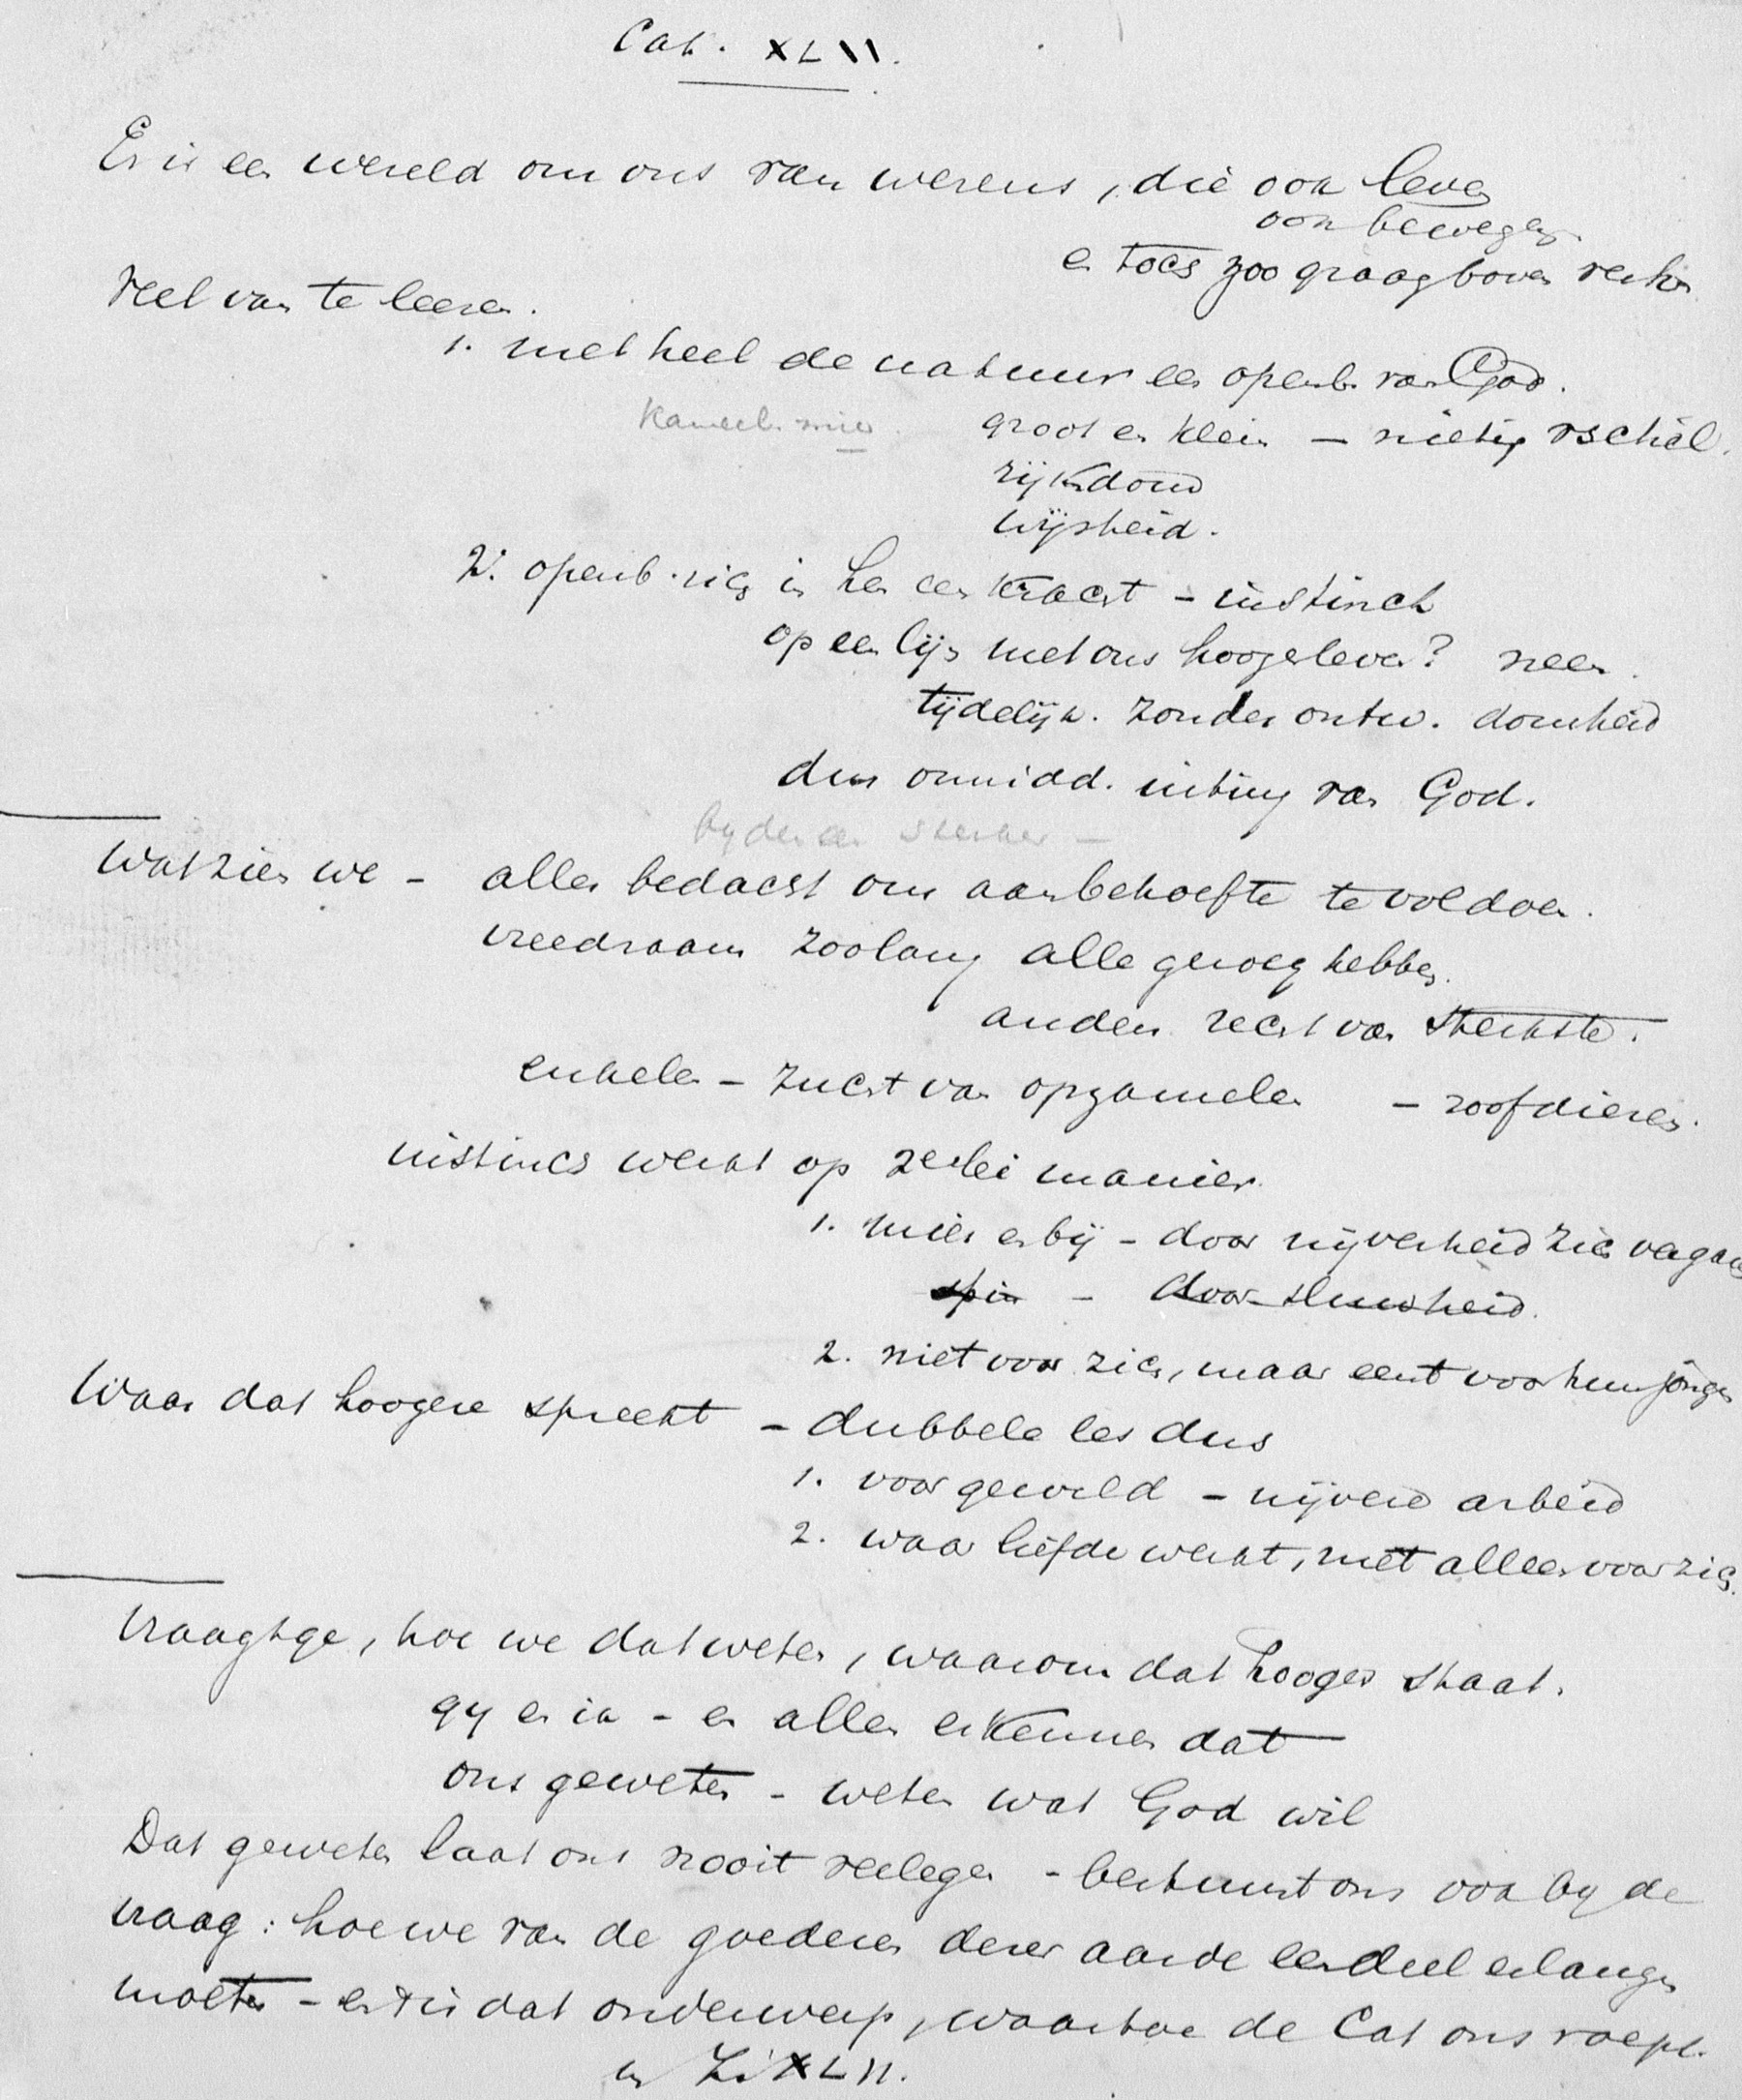 Cat. XLII.
Er is een wereld om ons van wezens, die ook leven
ook bewegen
en toch zoo graag boven rechten
Veel van te leeren.
1. met heel de natuur een openb. van God.
Kameel. mier.
groot en klein — nietig verschil.
rijkdom
wijsheid.
2. openb. zich in hen een kracht – instinct
op een lijn met ons hooger leven? neen.
tijdelijk. zonder ontw. domheid
dus onmidd. uiting van God.
by den een sterker —
Wat zien we – allen bedacht om aan behoefte te voldoen.
vreedzaam zoolang alle genoeg hebben.
anders recht van sterkste.
enkelen – zucht van opzamelen – roofdieren.
instinct werkt op 2erlei manier.
1. mier en bij – door nijverheid zich vergaren
spin – door sluwheid.
2. niet voor zich, maar eerst voor hun jongen
Waar dat hoogere spreekt – dubbele les dus
1. voor geweld – nijvere arbeid
2. waar liefde werkt, niet alleen voor zich.
Vraagt ge, hoe we dat weten, waarom dat hooger staat.
gy en ik – en allen erkennen dat
ons geweten – weten wat God wil
Dat geweten laat ons nooit verlegen – bestuurt ons ook by de
vraag: hoe we van de goederen dezer aarde een deel erlangen
moeten – en 't is dat onderwerp, waartoe de Cat ons roept.
in Zo XLII.